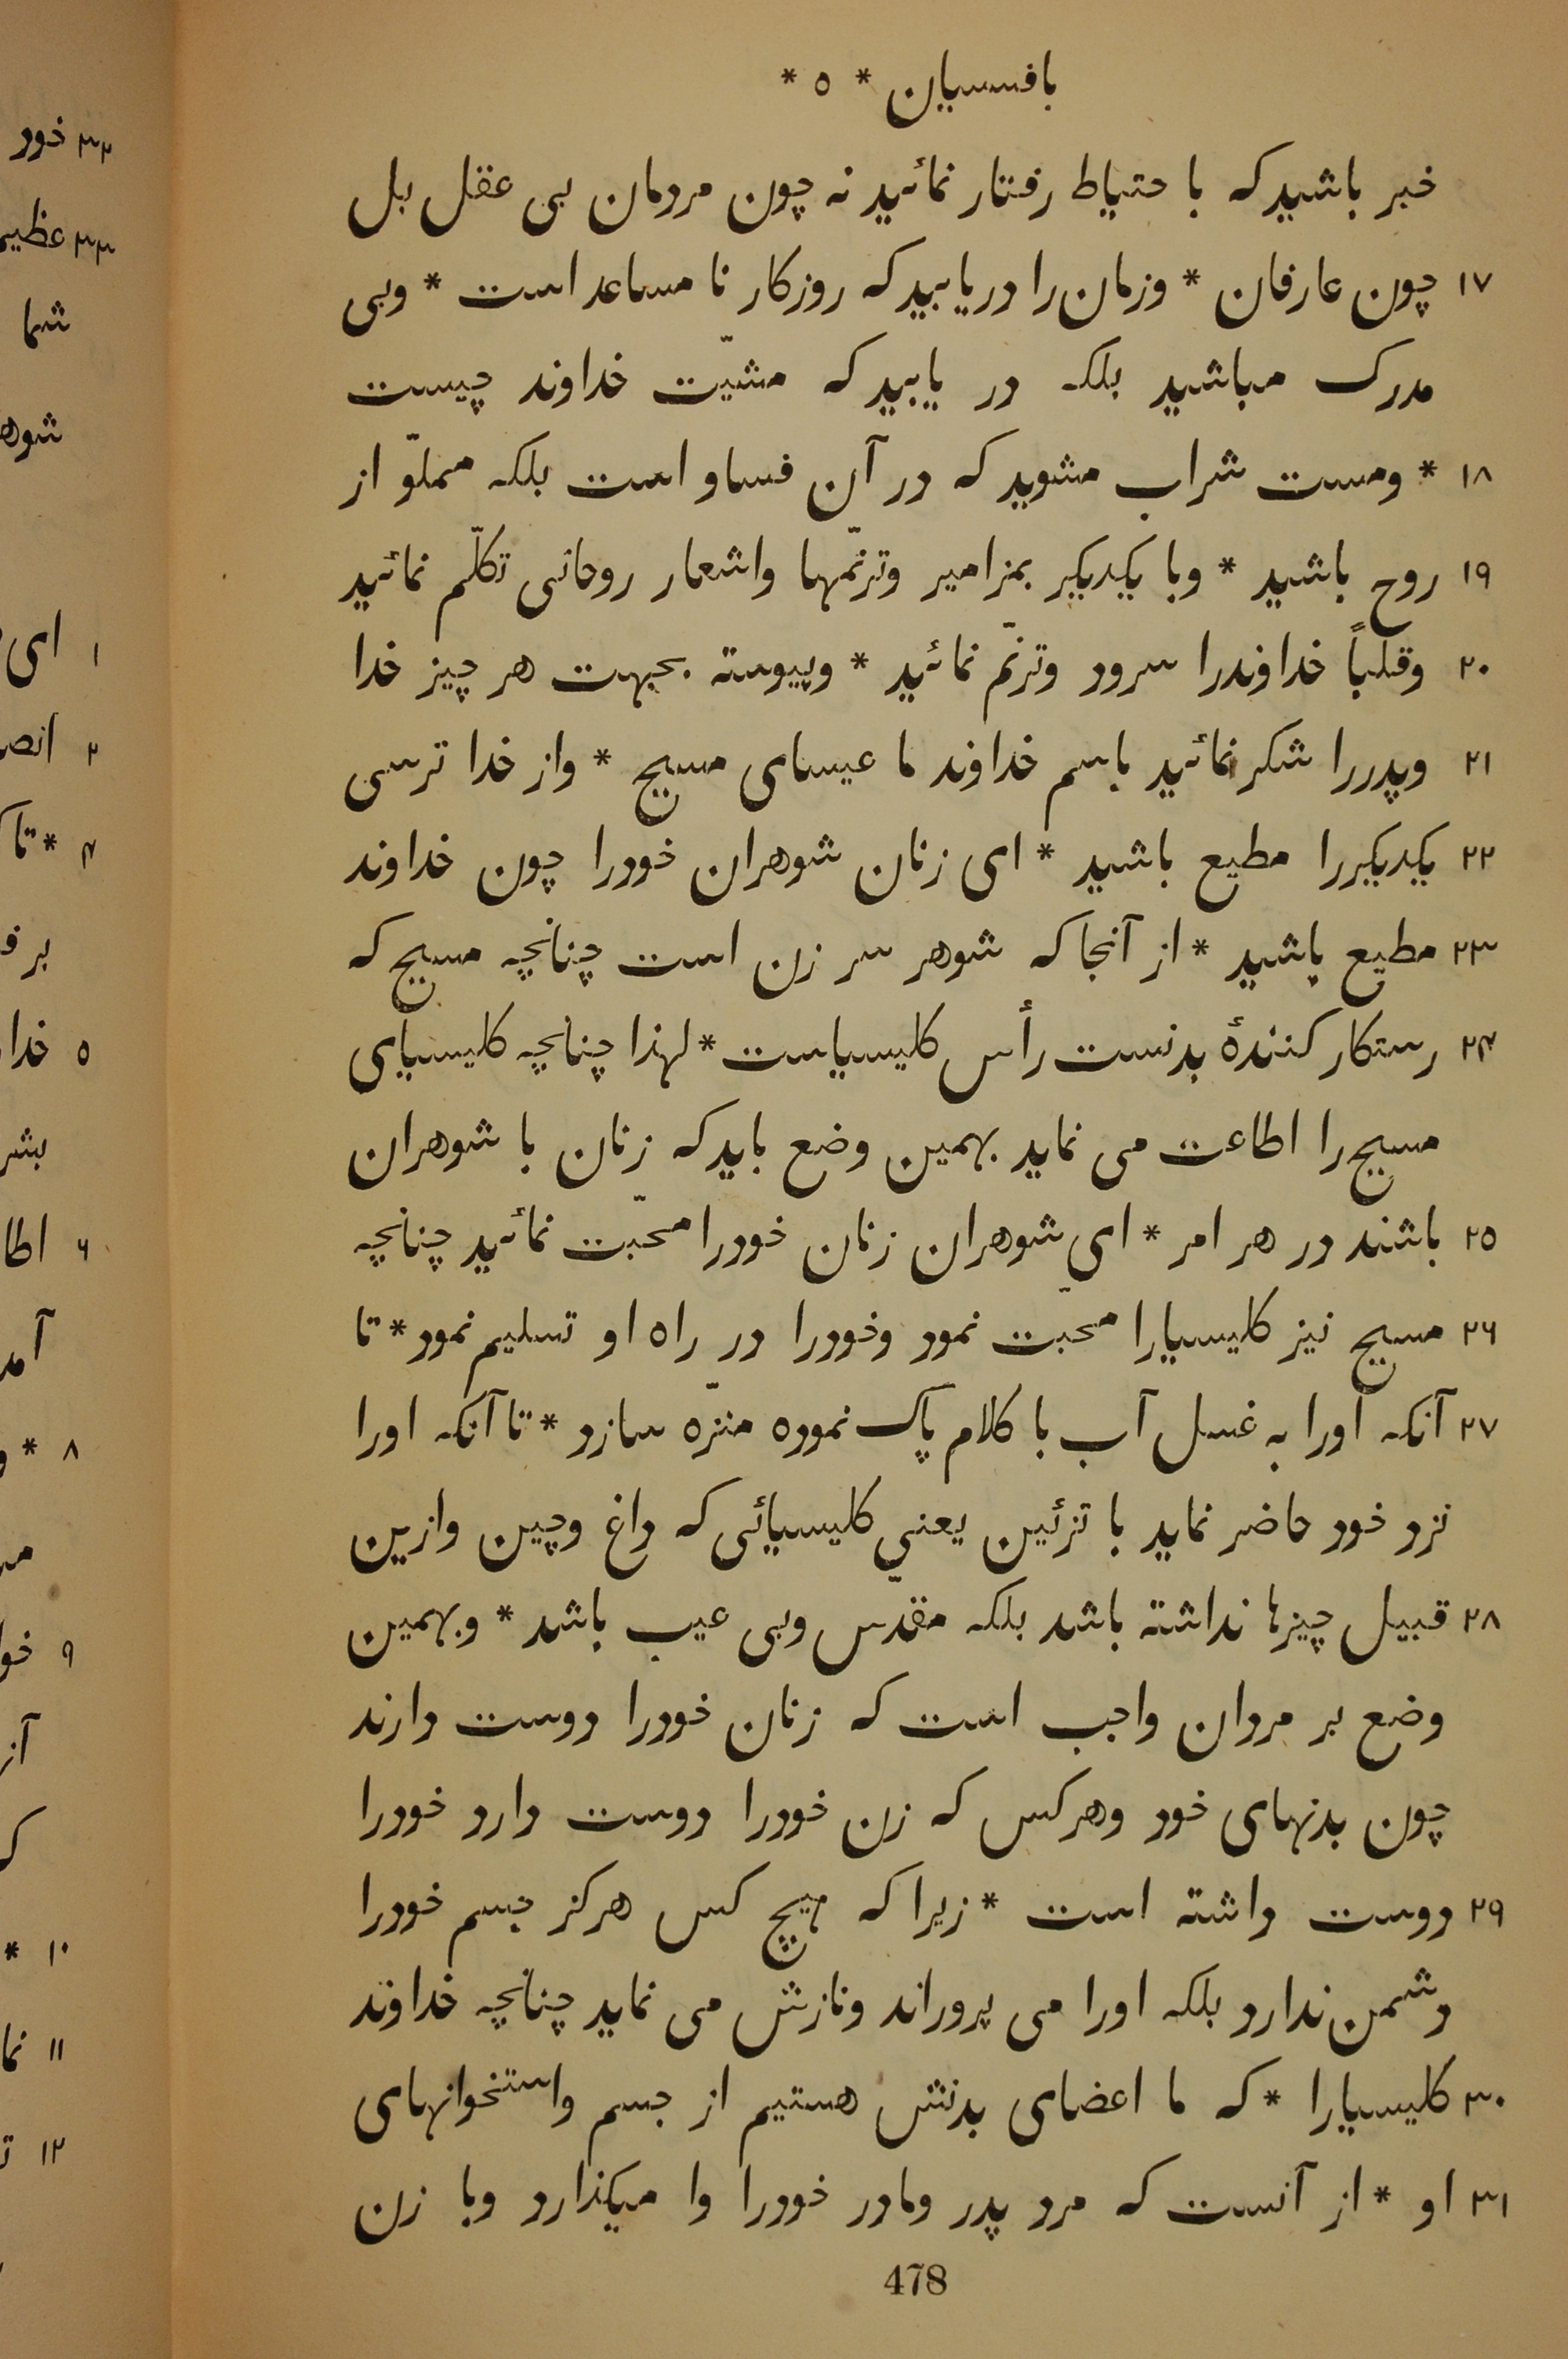 بافسسیان * ۵ *
خبر باشید که با حتیاط رفتار نمائید نه چون مردمان بی عقل بل
۱۷ چون عارفان * وزمان را دریابید که روزکار نا مساعد است * وبی
مدرک مباشید بلکه در یابید که مشیّت خداوند چیست
۱۸ * ومست شراب مشوید که در آن فساد است بلکه مملوّ از
۱۹ روح باشید * وبا یکدیکر بمزامیر وترنّمها واشعار روحانی تکلّم نمائید
۲۰ وقلباً خداوندرا سرود وترنّم نمائید * وپیوسته بجهت هر چیز خدا
۲۱ وپدررا شکر نمائید باسم خداوند ما عیسای مسیح * واز خدا ترسی
۲۲ یکدیکررا مطیع باشید * ای زنان شوهران خودرا چون خداوند
۲۳ مطیع باشید * از آنجا که شوهر سر زن است چنانچه مسیح که
۲۴ رستکار کنندهٔ بدنست رأس کلیسیاست * لهذا چنانچه کلیسیای
مسیح را اطاعت می نماید بهمین وضع باید که زنان با شوهران
۲۵ باشند در هر امر * ای شوهران زنان خودرا محبّت نمائید چنانچه
۲۶ مسیح نیز کلیسیارا محبّت نمود وخودرا در راه او تسلیم نمود * تا
۲۷ آنکه اورا به غسل آب با کلام پاک نموده منزّه سازد * تا آنکه اورا
نزد خود حاضر نماید با تزئین یعنی کلیسیائی که داغ وچین وازین
۲۸ قبیل چیزها نداشته باشد بلکه مقدّس وبی عیب باشد * وبهمین
وضع بر مردان واجب است که زنان خودرا دوست دارند
چون بدنهای خود وهرکس که زن خودرا دوست دارد خودرا
۲۹ دوست داشته است * زیرا که هیچ کس هرکز جسم خودرا
دشمن ندارد بلکه اورا می پروراند ونازش می نماید چنانچه خداوند
۳۰ کلیسیارا * که ما اعضای بدنش هستیم از جسم واستخوانهای
۳۱ او * از آنست که مرد پدر ومادر خودرا وا میکذارد وبا زن
478
۳۲ خود
۳۳
شما
۱ ای
۲
۴ * تا
۵
۶
۸ *
۹
۱۰ *
۱۱
۱۲